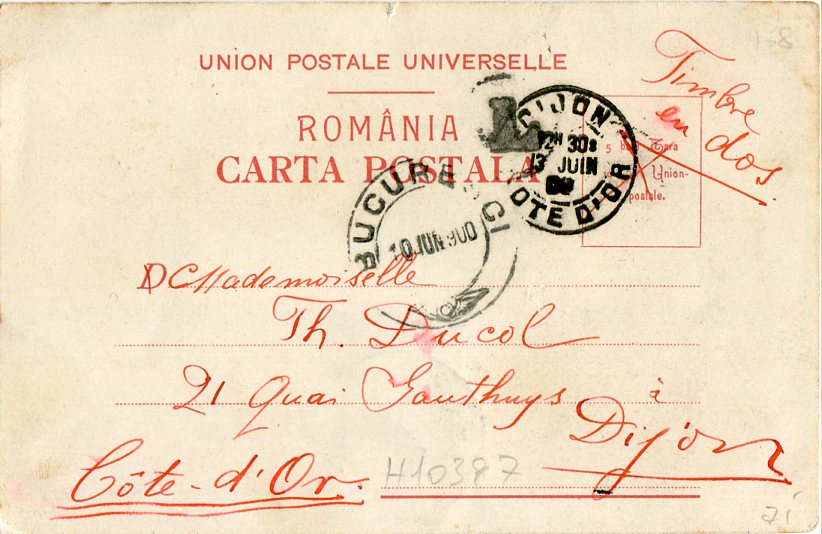 1-8
UNION POSTALE UNIVERSELLE
Timbre
en dos.
ROMÂNIA
CARTA POSTALA
5
Union-
postale.
DIJON
12H 30S
13 JUIN
COTE D'OR
BUCURESCI
10 JUN 900
Mademoiselle
Th. Ducol
21 Quai Gauthuys à
Dijon
Côte-d'Or.
H10387
71